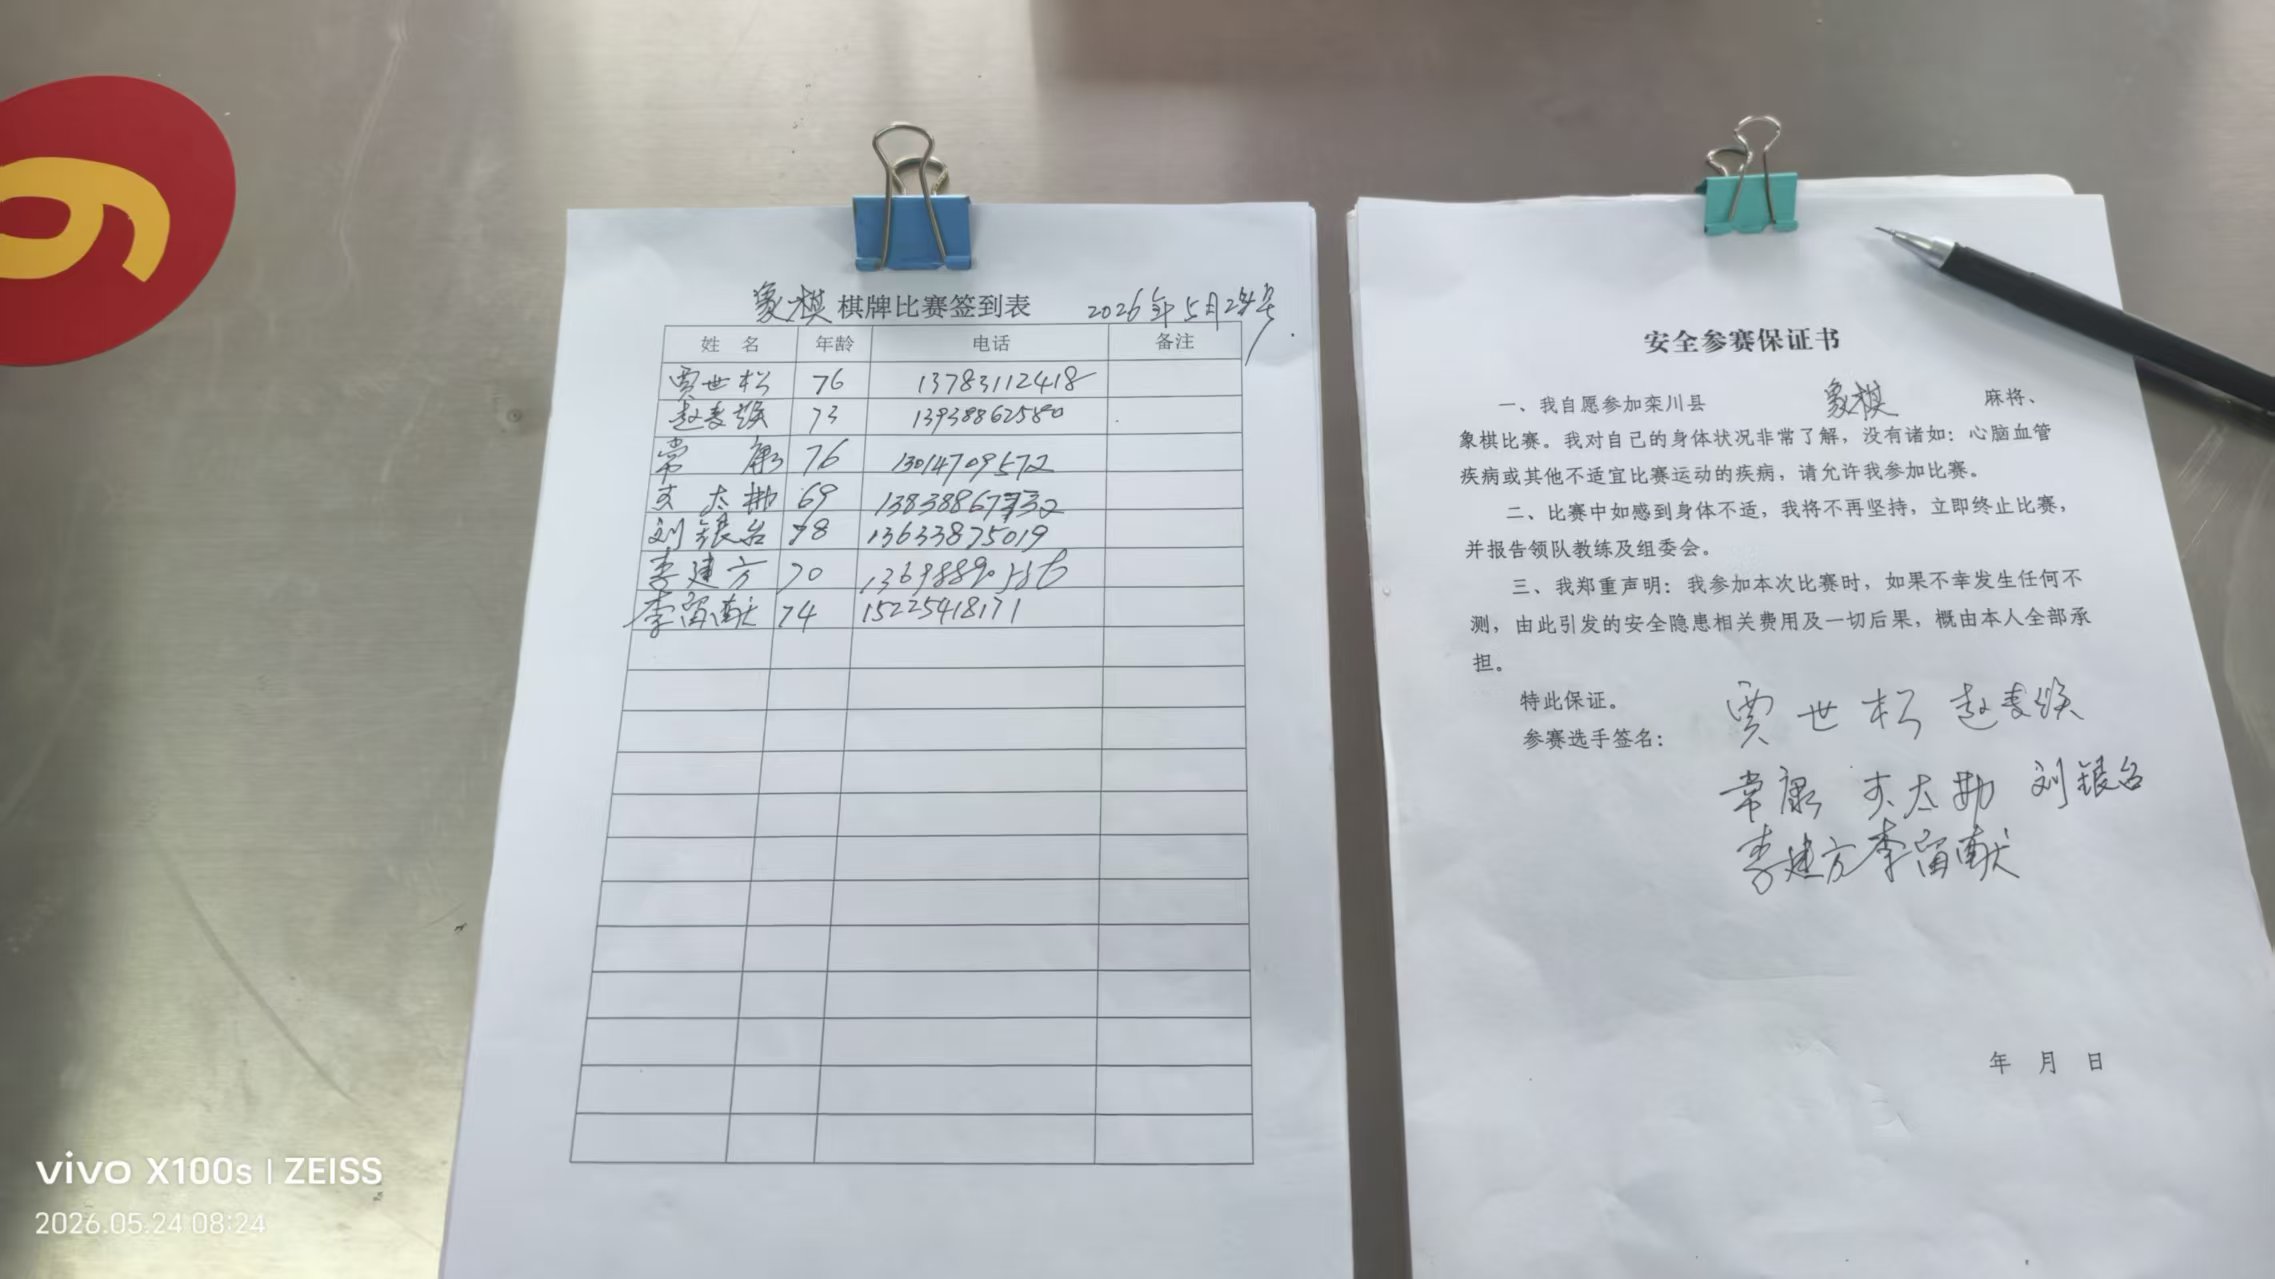 6
象棋 棋牌比赛签到表 2026年5月24号
姓 名 年龄 电话 备注
贾世松 76 13783112418
赵麦焕 73 13938862580
常 康 76 13014709572
太 69
刘银台 78 13633875019
李建方 70
李留献 74 15225418171
安全参赛保证书
一、我自愿参加栾川县 象棋 麻将、
象棋比赛。我对自己的身体状况非常了解,没有诸如:心脑血管
疾病或其他不适宜比赛运动的疾病,请允许我参加比赛。
二、比赛中如感到身体不适,我将不再坚持,立即终止比赛,
并报告领队教练及组委会。
三、我郑重声明:我参加本次比赛时,如果不幸发生任何不
测,由此引发的安全隐患相关费用及一切后果,概由本人全部承
担。
特此保证。
参赛选手签名: 贾世松 赵麦焕
常康 太 刘银台
李建方 李留献
年 月 日
vivo X100s | ZEISS
2026.05.24 08:24